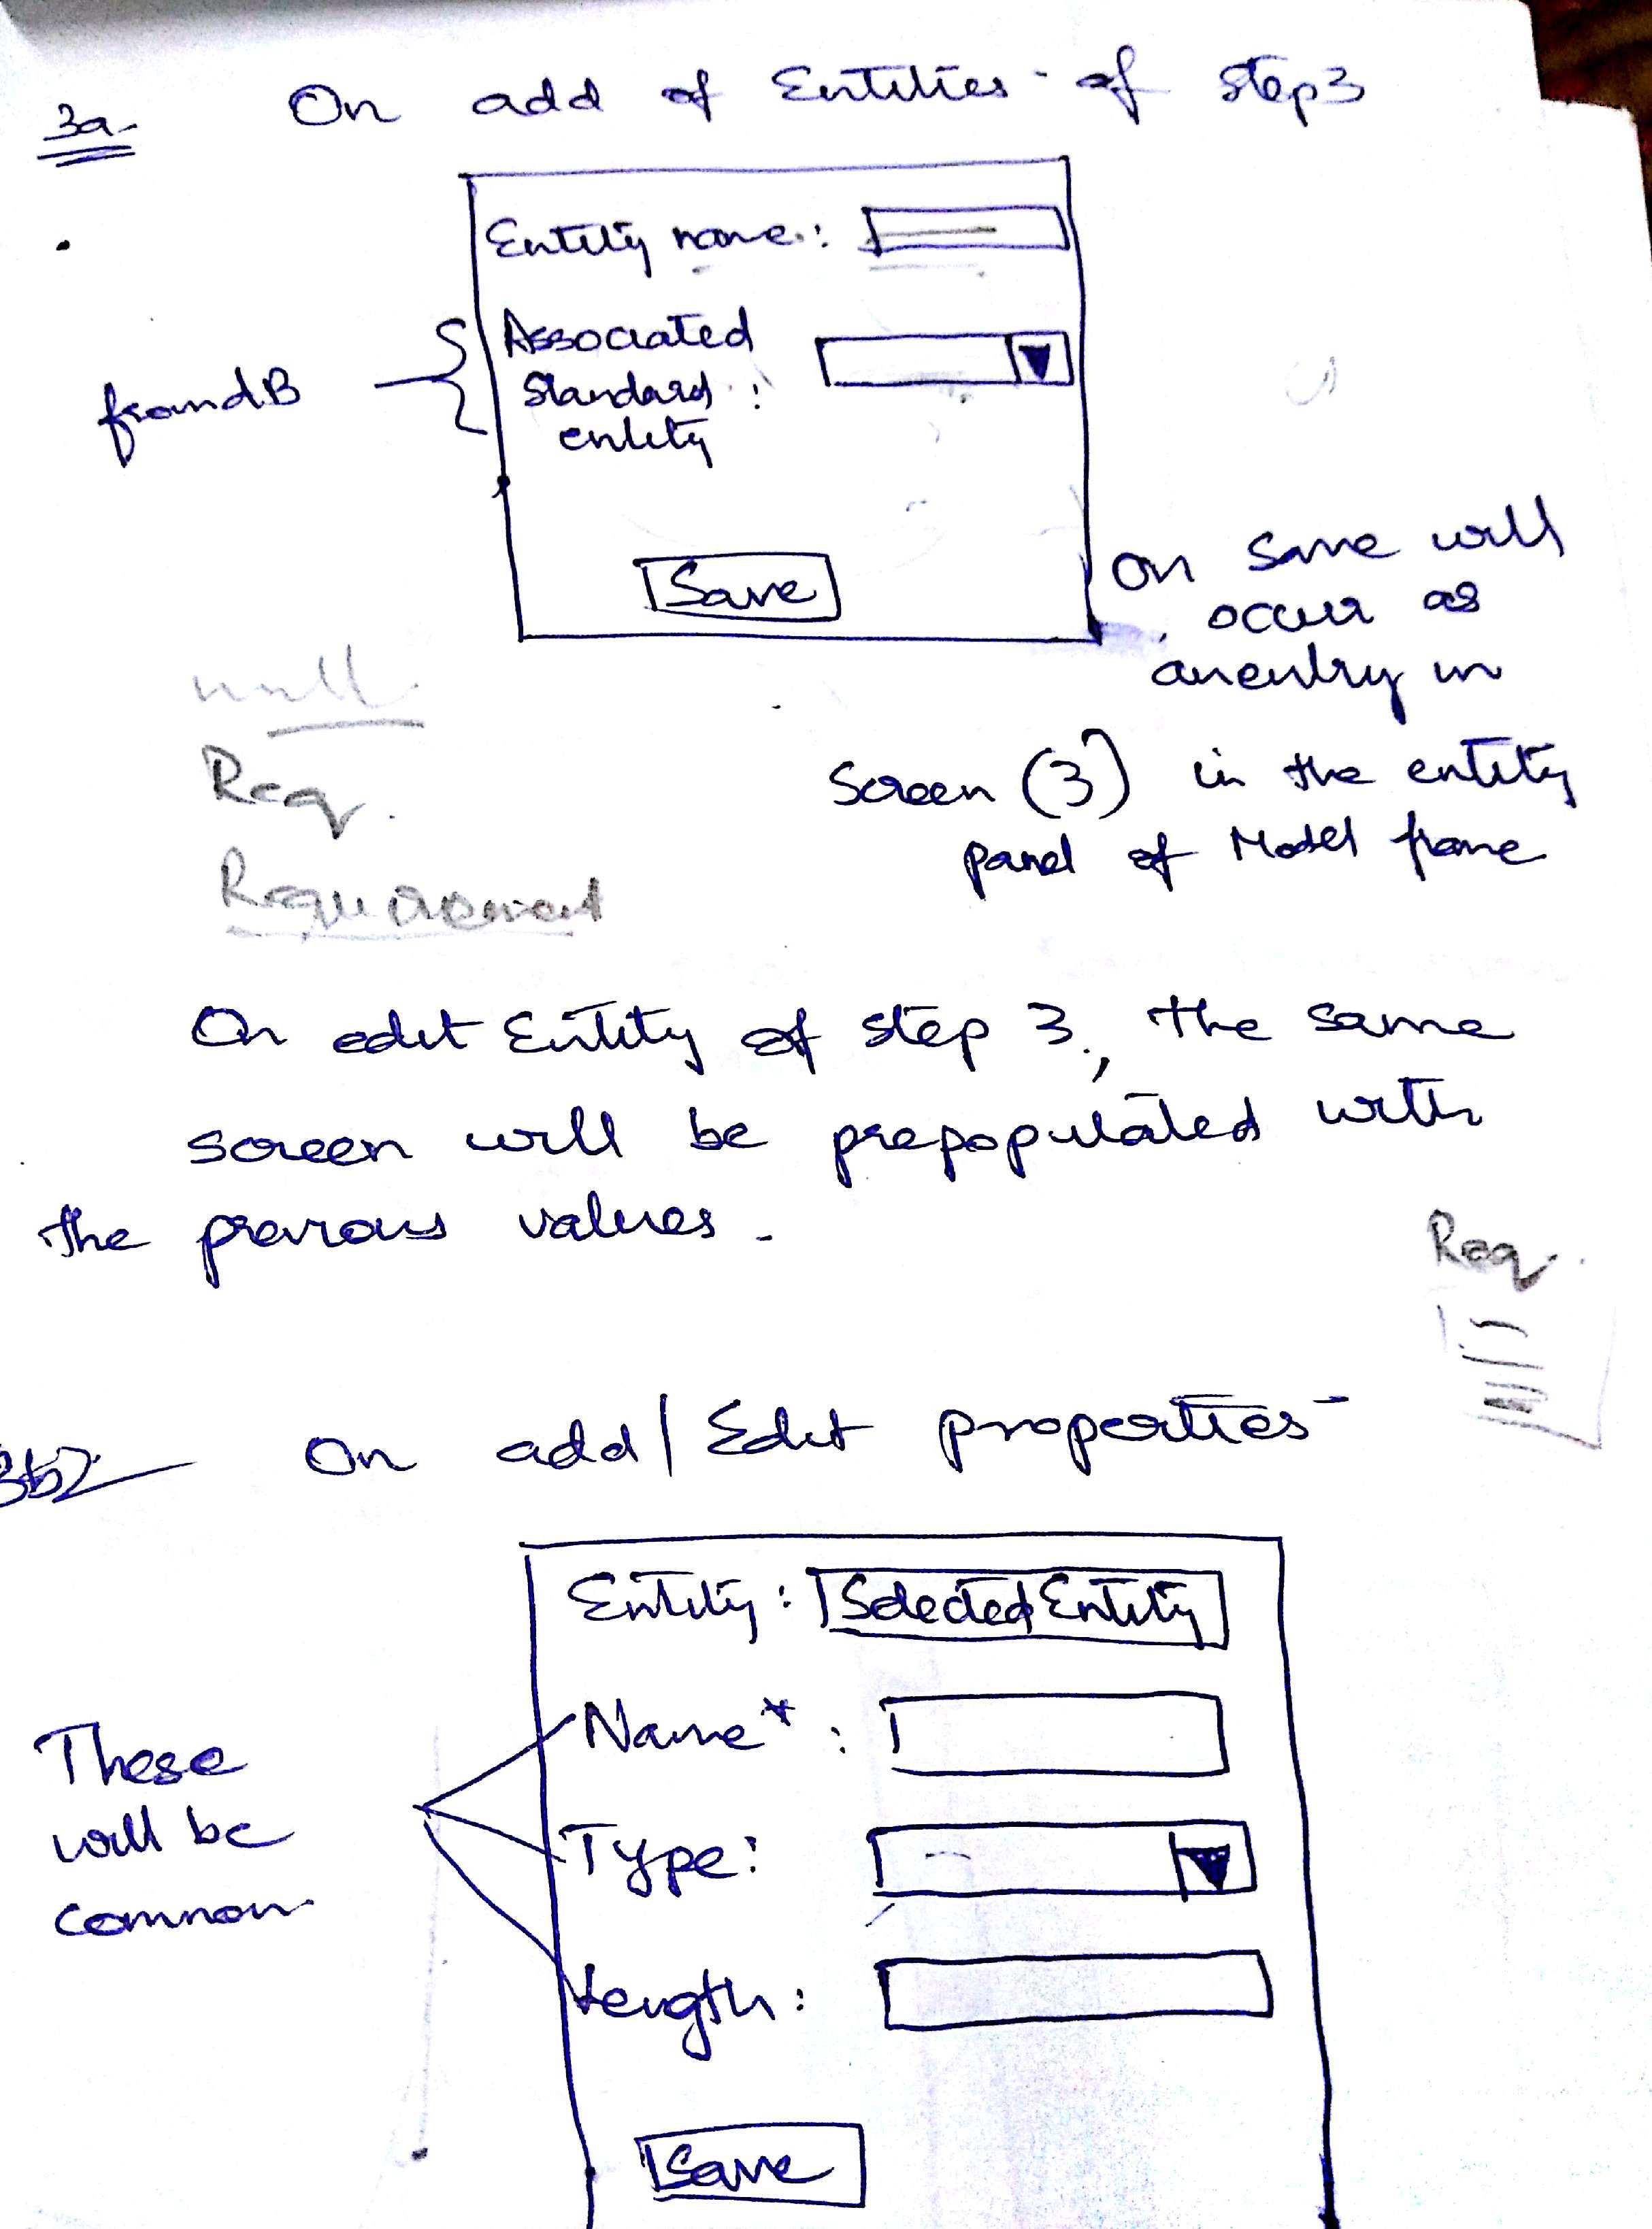 3a On add of Entities - of step 3
Entity name :
Associated
Standard :
entity
from dB
Save
On save will
occur as
an entry in
screen (3) in the entity
panel of Model frame
null
Req.
Requirement
On edit Entity of step 3., the same
screen will be prepopulated with
the previous values.
Req.
3b2 On add/Edit properties -
Entity : Selected Entity
Name* :
Type :
Length :
These
will be
common
Save